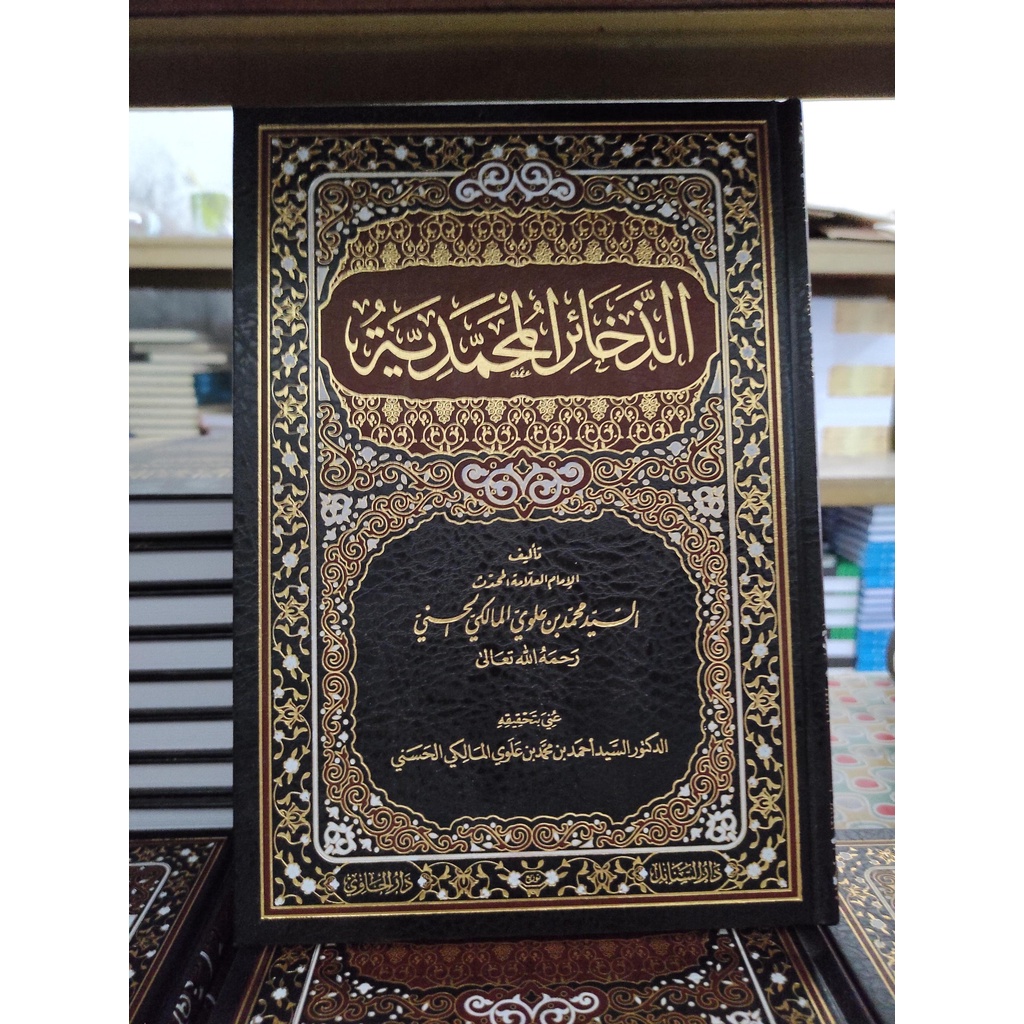 الذَّخَائِرُ المُحَمَّدِيَّةُ
تأليف
الإمام العلّامة المحدّث
السّيّد محمّد بن علوي المالكي الحسنيّ
رَحمَهُ الله تعَالىٰ
عُنيَ بتَحْقِيقِهِ
الدكتور السَّيد أحمَد بن محمَّد بن عَلَوي المَالِكي الحَسَني
دَارُ السَّنَابل
توزيع
دَارُ الحَاوي